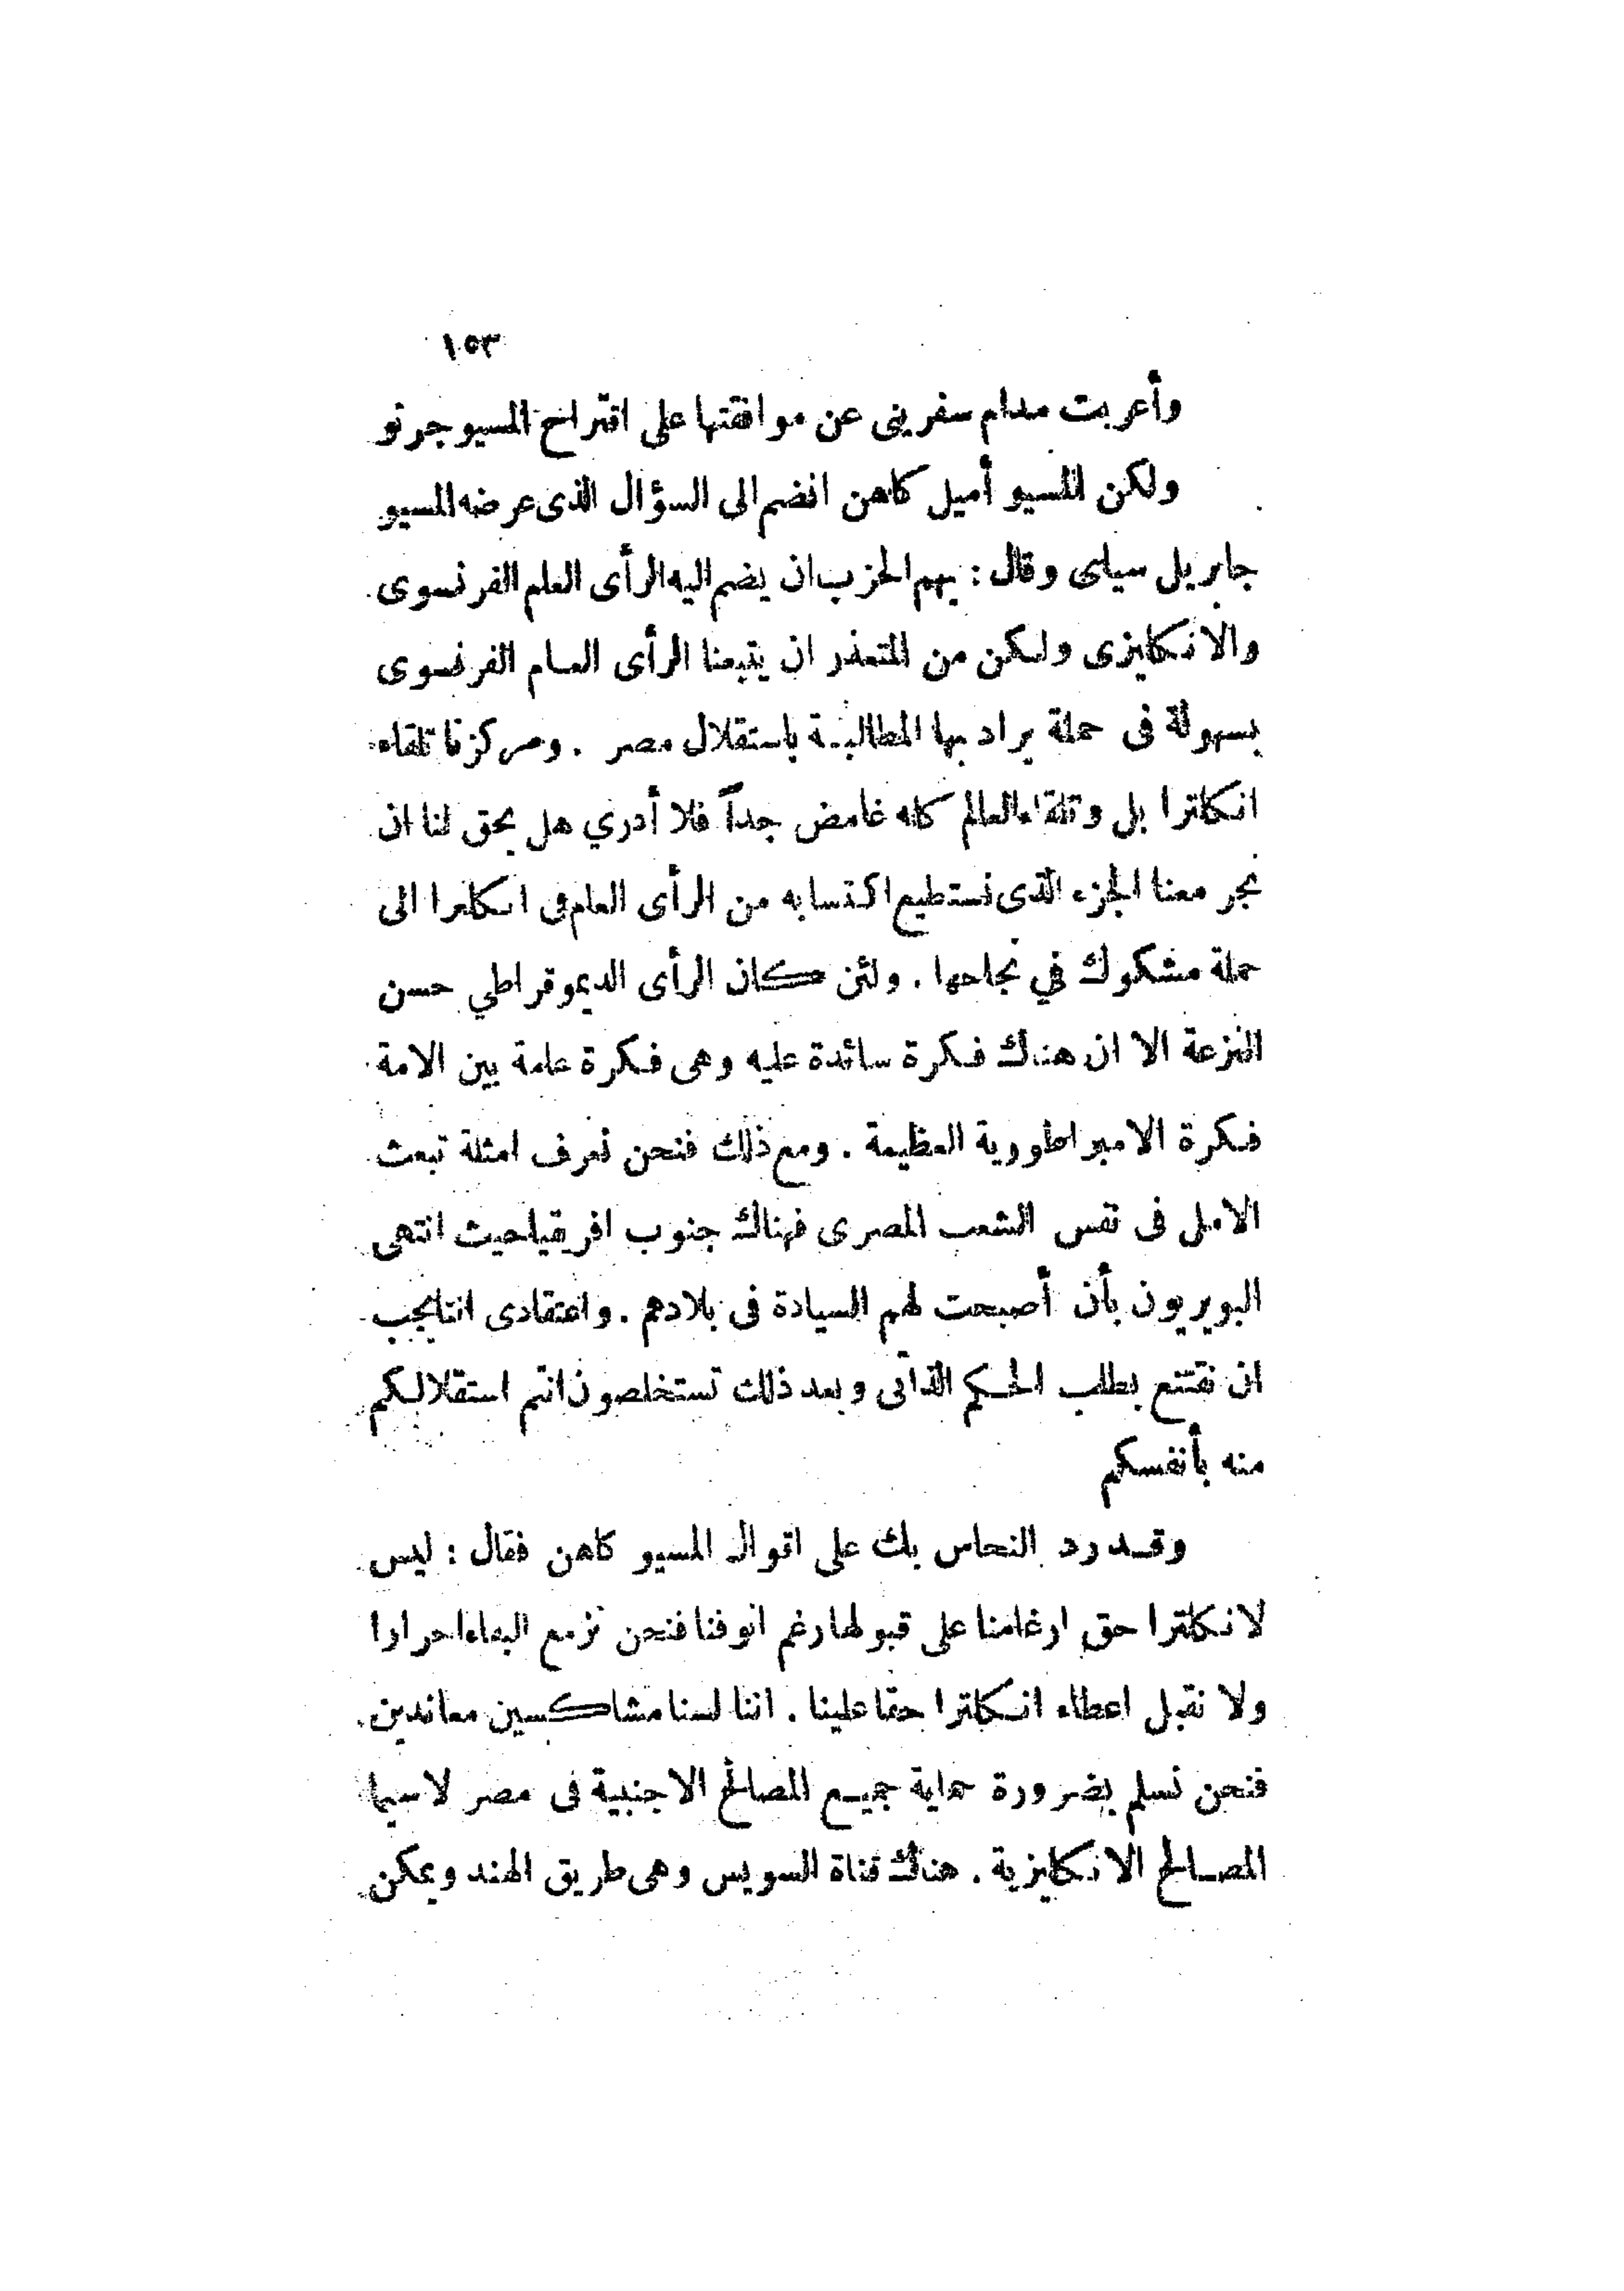 ١٥٣
وأعربت مدام سفرينى عن موافقتها على اقتراح المسيو جرنو
ولكن المسيو أميل كاهن انضم الى السؤال الذى عرضه المسيو
جابريل سيلى وقال : يهم الحزب ان يضم اليه الرأى العام الفرنسوى
والانكليزى ولكن من المتعذر ان يتبعنا الرأى العام الفرنسوى
بسهولة فى حملة يراد بها المطالبة باستقلال مصر . ومركزنا تلقاء
انكلترا بل وتلقاء العالم كله غامض جداً فلا أدري هل يحق لنا ان
نجر معنا الجزء الذى نستطيع اكتسابه من الرأى العام فى انكلترا الى
حملة مشكوك في نجاحها . ولئن كان الرأى الديموقراطي حسن
النزعة الا ان هناك فكرة سائدة عليه وهى فكرة عامة بين الامة
فكرة الامبراطورية العظيمة . ومع ذلك فنحن نعرف امثلة تبعث
الامل فى نفس الشعب المصرى فهناك جنوب افريقيا حيث انتهى
البويريون بأن أصبحت لهم السيادة فى بلادهم . واعتقادى اننا يجب
ان نقتنع بطلب الحكم الذاتى وبعد ذلك تستخلصون انتم استقلالكم
منه بأنفسكم
وقد رد النحاس بك على اقوال المسيو كاهن فقال : ليس
لانكلترا حق ارغامنا على قبولها رغم انوفنا فنحن نزمع البقاء احرارا
ولا نقبل اعطاء انكلترا حقا علينا . اننا لسنا مشاكسين معاندين
فنحن نسلم بضرورة حماية جميع المصالح الاجنبية فى مصر لاسيما
المصالح الانكليزية . هناك قناة السويس وهى طريق الهند ويمكن